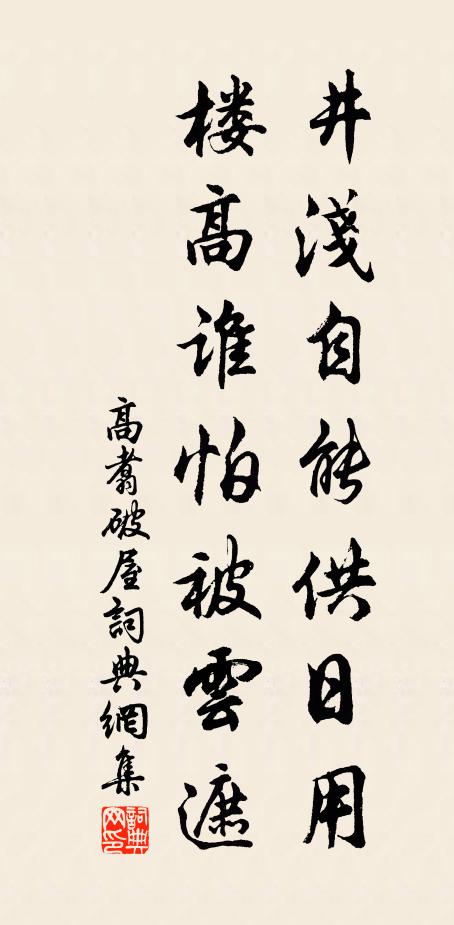 井淺自能供日用
楼高谁怕被雲遮
高翥破屋詞典網集
詞典网印